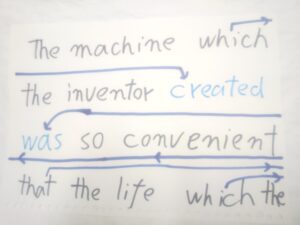 The machine which
the inventor created
was so convenient
that the life which the